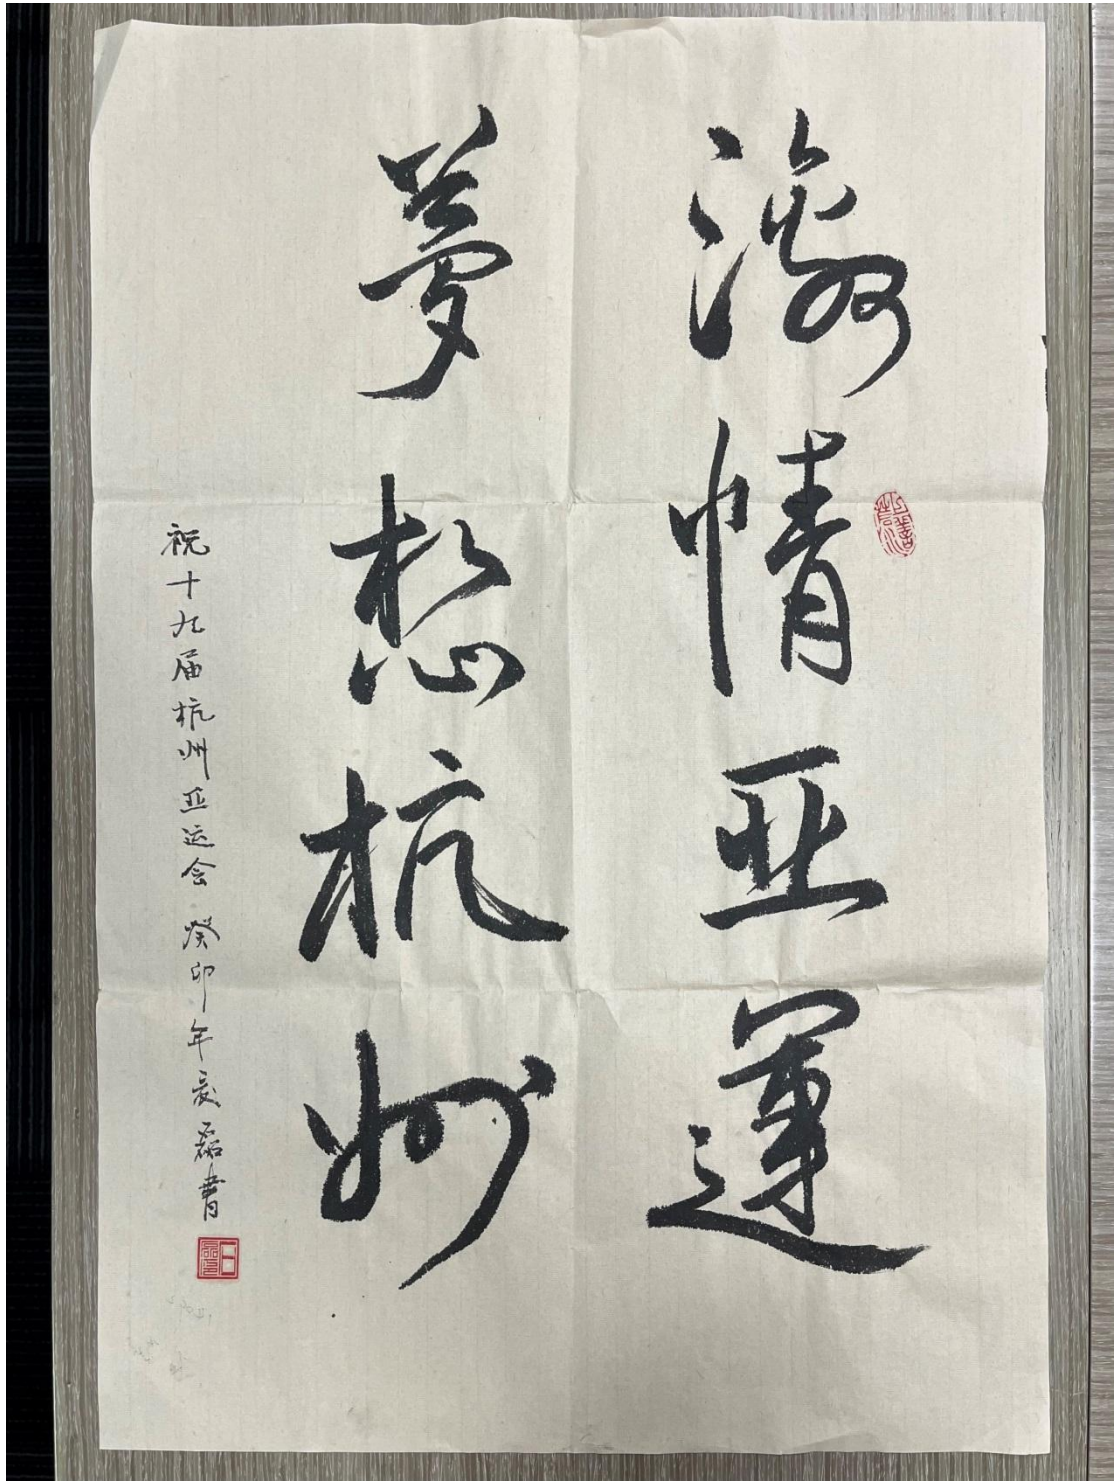 激情亚運
夢想杭州
祝十九届杭州亚运会 癸卯年夏 磊書